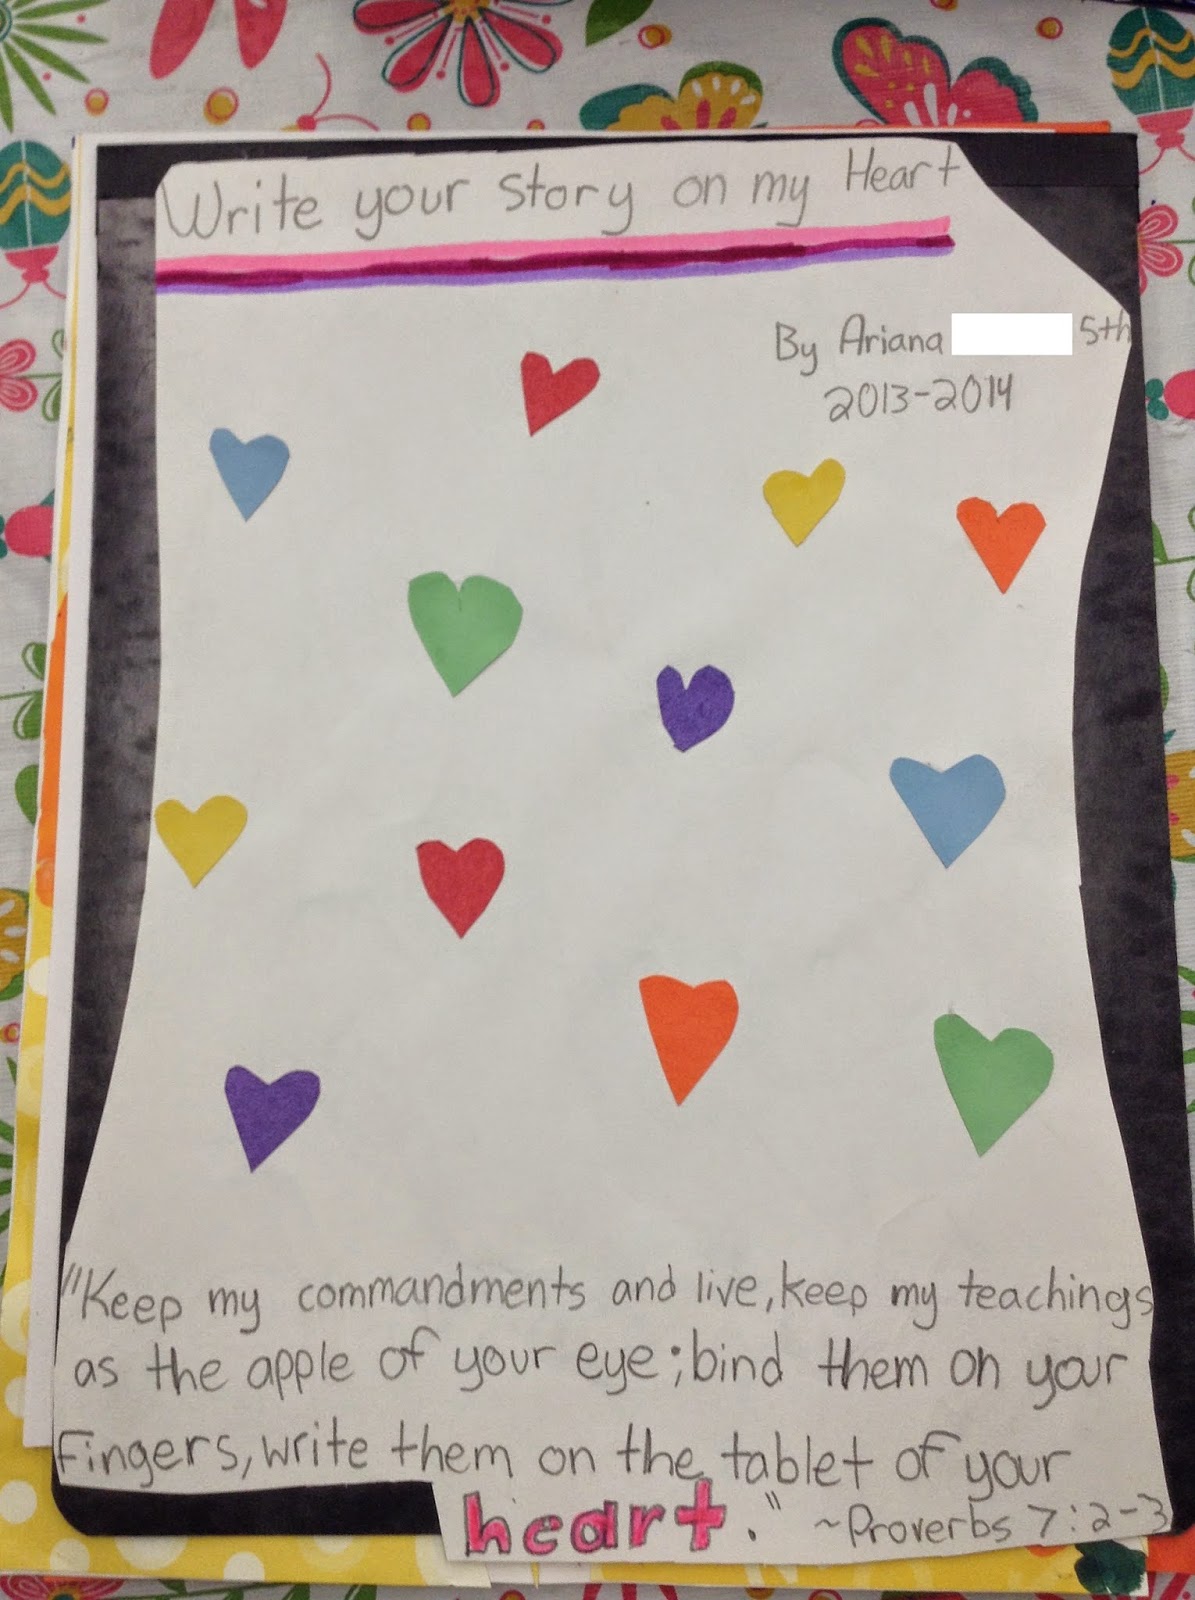 Write your Story on my Heart
By Ariana 5th
2013-2014
"Keep my commandments and live, keep my teachings
as the apple of your eye; bind them on your
Fingers, write them on the tablet of your
heart." ~Proverbs 7:2-3